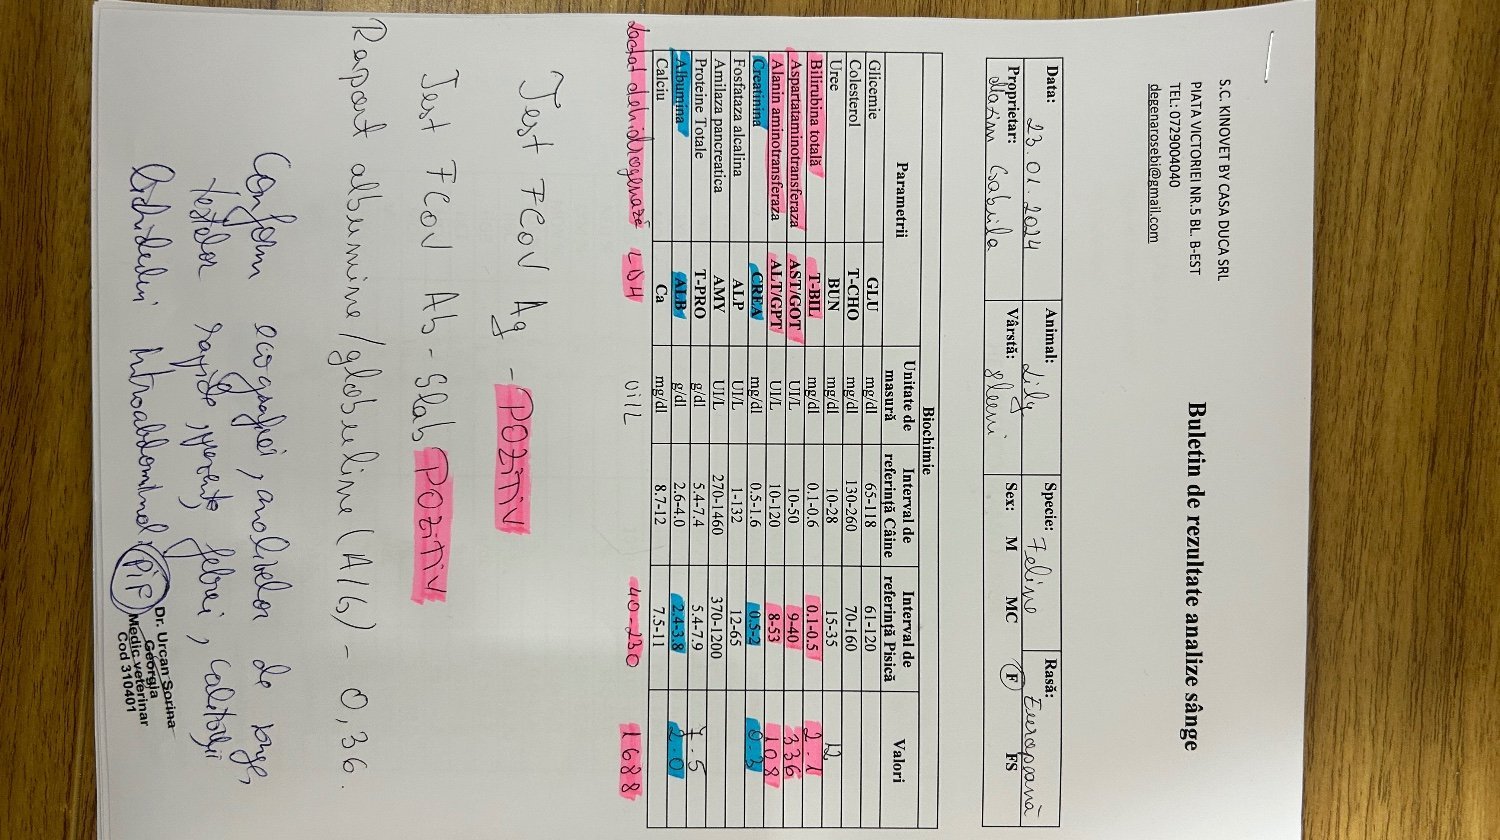 S.C. KINOVET BY CASA DUCA SRL
PIATA VICTORIEI NR.5 BL. B-EST
TEL: 0729004040
degenarosebi@gmail.com
Buletin de rezultate analize sânge
Data: 23.01.2024 Animal: Lily Specie: Felină Rasă: Europeană
Proprietar: Gabriela Vârstă: 8 luni Sex: M MC F FS
Biochimie
Parametrii Unitate de masură Interval de referință Câine Interval de referință Pisică Valori
Glicemie GLU mg/dl 65-118 61-120
Colesterol T-CHO mg/dl 130-260 70-160
Uree BUN mg/dl 10-28 15-35 12
Bilirubina totală T-BIL mg/dl 0.1-0.6 0.1-0.5 2.1
Aspartataminotransferaza AST/GOT UI/L 10-50 9-40 336
Alanin aminotransferaza ALT/GPT UI/L 10-120 8-53 108
Creatinina CREA mg/dl 0.5-1.6 0.5-2 0.3
Fosfataza alcalina ALP UI/L 1-132 12-65
Amilaza pancreatica AMY UI/L 270-1460 370-1200
Proteine Totale T-PRO g/dl 5.4-7.4 5.4-7.9 7.5
Albumina ALB g/dl 2.6-4.0 2.4-3.8 2.0
Calciu Ca mg/dl 8.7-12 7.5-11
Lactat dehidrogenază LDH Ui/L 40-230 1688
Test FCoV Ag - POZITIV
Test FCoV Ab - Slab POZITIV
Raport albumine/globuline (A/G) - 0,36.
Conform ecografiei, analizelor de sânge,
testelor rapide, prezența febrei, calității
lichidului intraabdominal: PIF
Dr. Urcan Sorina
Georgia
Medic veterinar
Cod 310401